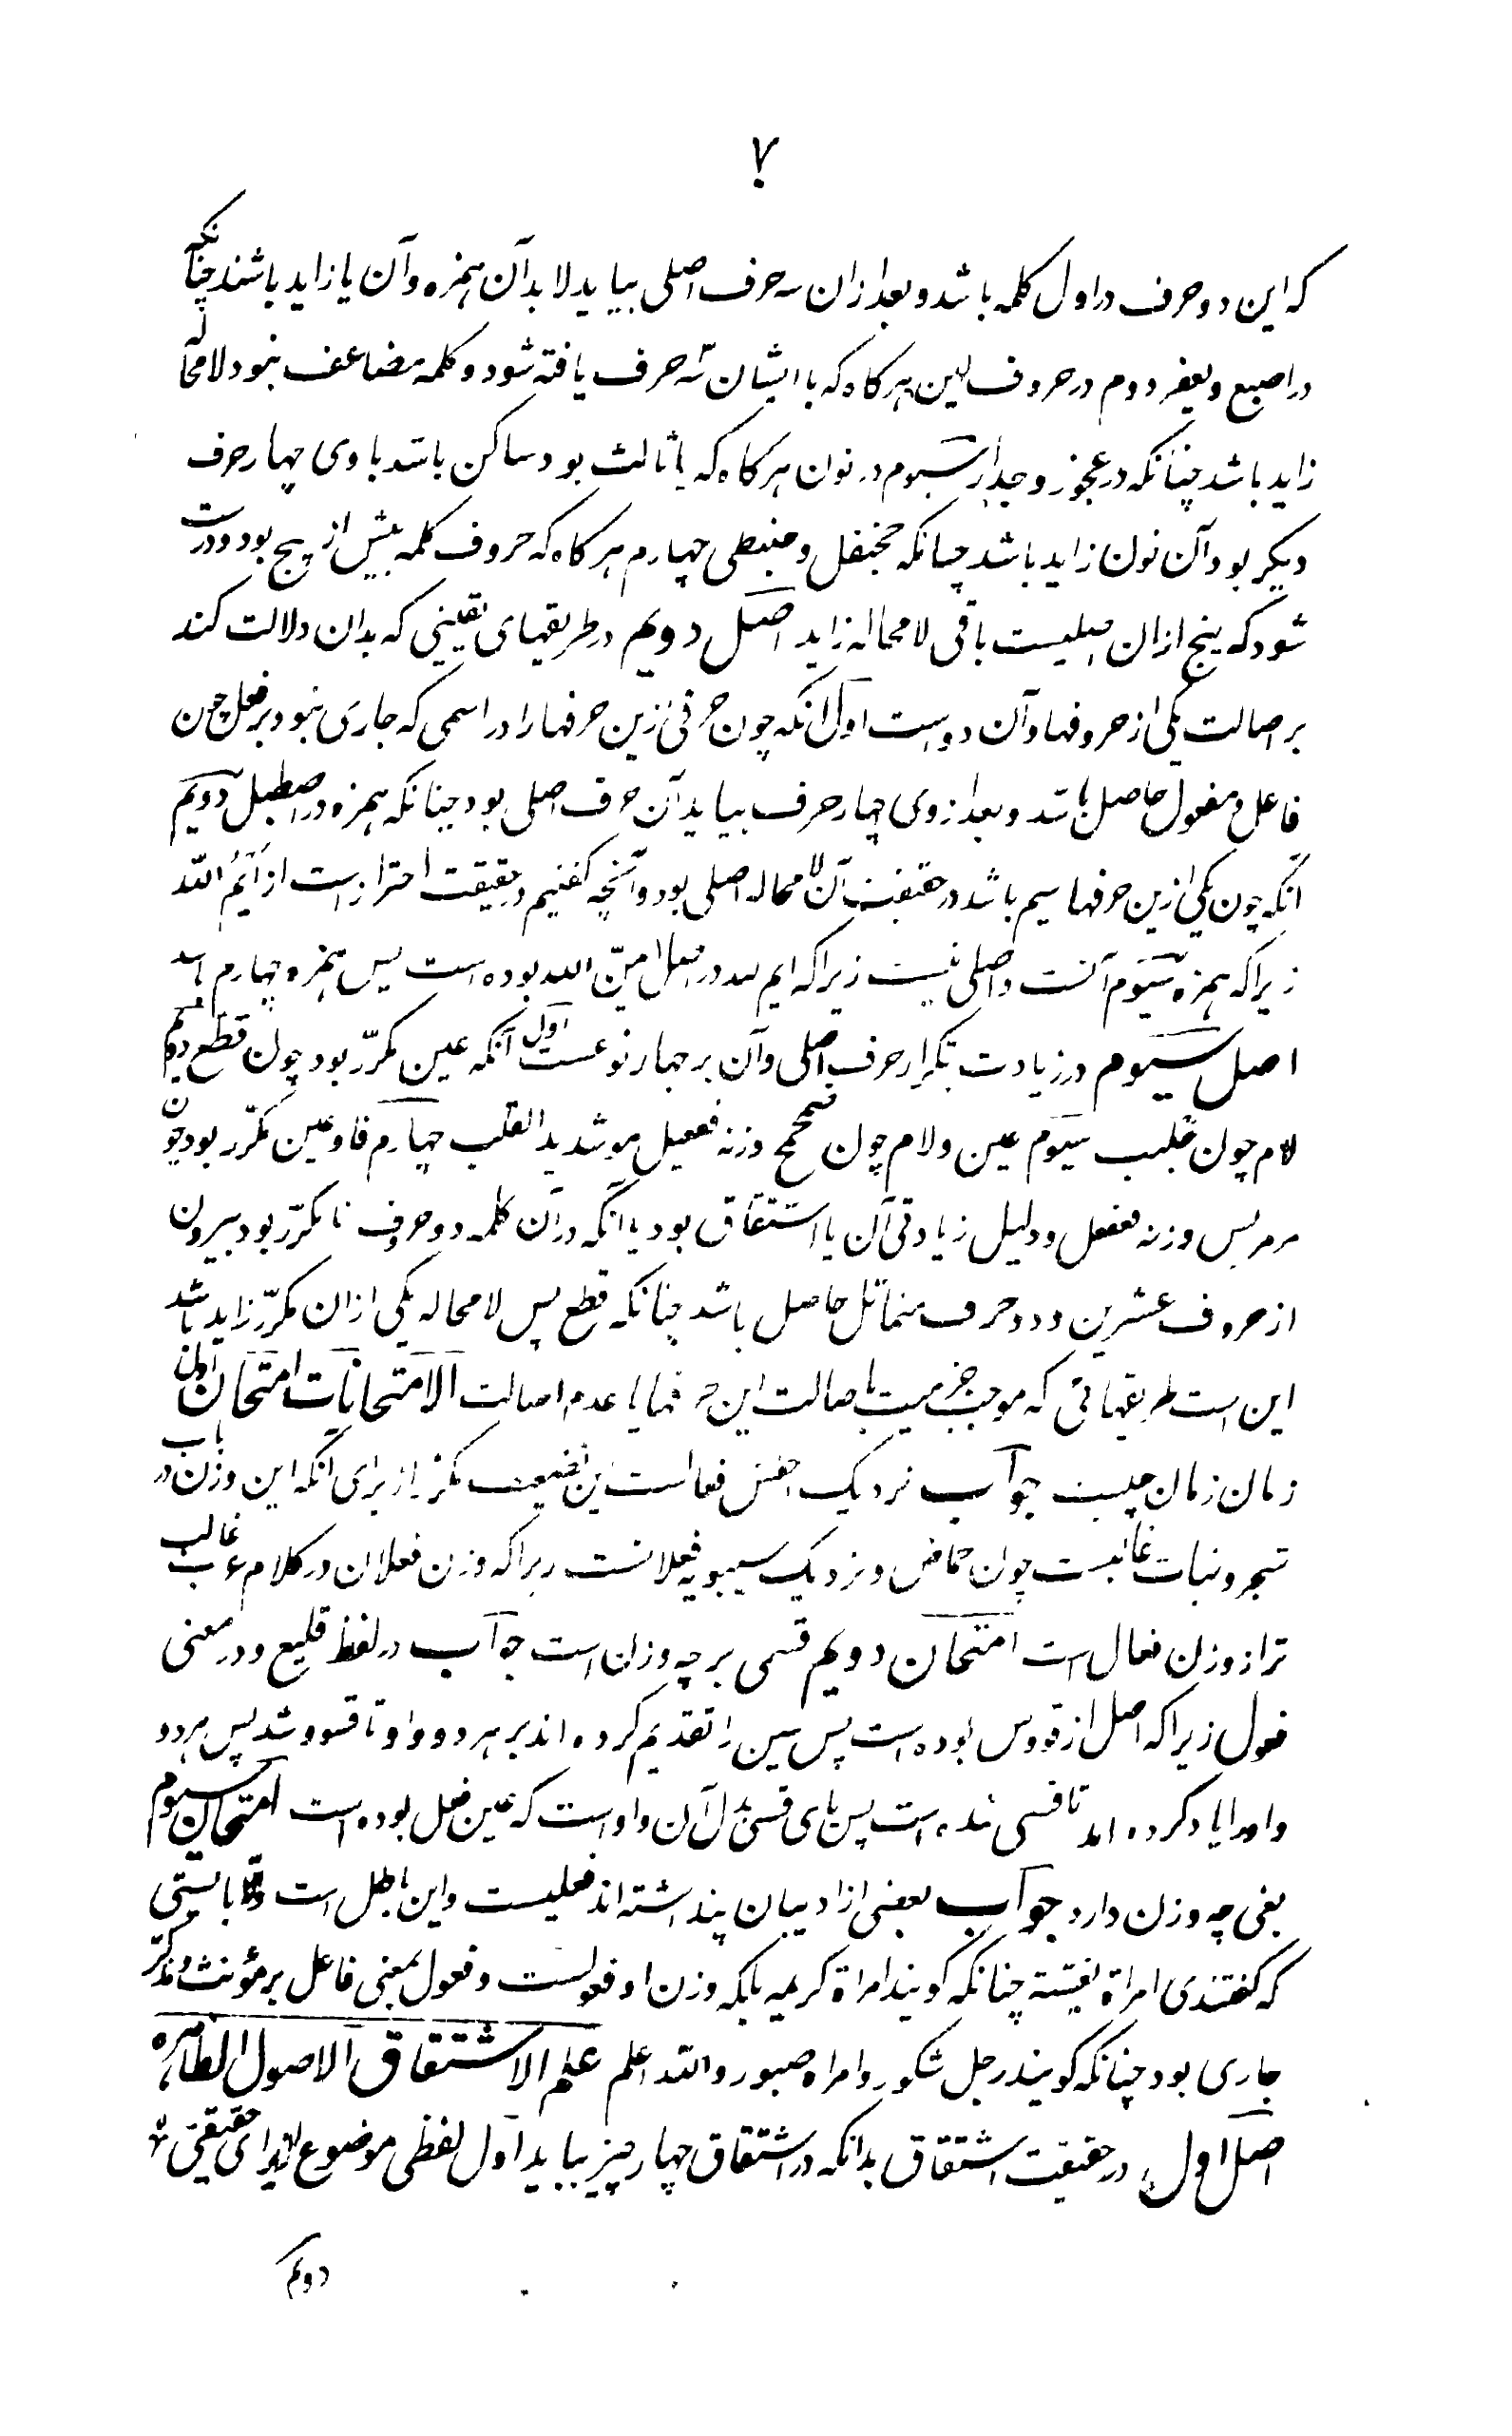 ۷
که این دو حرف در اول کلمه باشد و بعد ازان سه حرف اصلی بیاید لابد آن همزه و آن یا زاید باشند چنانکه
در اصبع و یعفر دوم در حروف لین هرکاه که با ایشان سه حرف یافته شود و کلمه مضاعف نبود لا محاله
زاید باشد چنانکه در عجوز و جدار سیوم در نون هرکاه که ثالث بود ساکن باشد با وی چهار حرف
دیکر بود آن نون زاید باشد چنانکه جحنفل و حبنطی چهارم هرکاه که حروف کلمه بیش از پنج بود و درست
شود که پنج ازان اصلیست باقی لا محاله زاید اصل دویم در طریقهای یقینی که بدان دلالت کند
بر اصالت یکی از حروفها و آن دو است اول آنکه چون حرفی ازین حرفها را در اسمی که جاری نبود بر فعل چون
فاعل و مفعول حاصل باشد و بعد از وی چهار حرف بیاید آن حرف اصلی بود چنانکه همزه در اصطبل دویم
آنکه چون یکی ازین حرفها سیم باشد در حقیقت آن لا محاله اصلی بود و آنچه کفتیم در حقیقت احترازست از ایم الله
زیرا که همزه سیوم آنست و اصلی نیست زیرا که ایم الله در اصل ایمن الله بوده است پس همزه چهارم باشد
اصل سیوم در زیادت بتکرار حرف اصلی و آن بر چهار نوعست اول آنکه عین مکرّر بود چون قطّع دویم
لام چون جلبب سیوم عین و لام چون صمحمح وزنه فعلعل هو شدید القلب چهارم فا و عین مکرّر بود چون
مرمریس وزنه فعفعل و دلیل زیادتی آن یا اشتقاق بود یا آنکه در آن کلمه دو حروف نا مکرّر بود بیرون
از حروف عشرین و دو حرف متماثل حاصل باشد چنانکه قطع پس لا محاله یکی ازان مکرّر زاید باشد
این است طریقهائی که موجب جزمیت باصالت این حرفها یا عدم اصالت الامتحانات امتحان اول
رمان زمان چیست جواب نزدیک اخفش فعالست از برای آنکه این وزن در باب
شجر و نبات غالبست چون حماض و نزدیک سیبویه فعلانست زیرا که وزن فعلان در کلام عرب غالب
تر از وزن فعال است امتحان دویم قسی بر چه وزن است جواب در لفظ فلیع و در معنی
فعول زیرا که اصل از قووس بوده است پس سین را تقدیم کرده اند بر هر دو واو تا قسوو شد پس هر دو
واو را یا کرده اند تا قسی شده است پس یای قسی بدل آن واو است که عین فعل بوده است امتحان سیوم
بغی چه وزن دارد جواب بعضی از ادیبان پنداشته اند فعیلست و این باطل است والا بایستی
که کفتندی امراة بغیّة چنانکه کویند امراة کریمه بلکه وزن او فعولست و فعول بمعنی فاعل بر مؤنث و مذکر
جاری بود چنانکه کویند رجل شکور و امراه صبور والله اعلم علم الاشتقاق الاصول الظاهره
اصل اول در حقیقت اشتقاق بدانکه در اشتقاق چهار چیز بباید اول لفظی موضوع از برای حقیقی
دویم